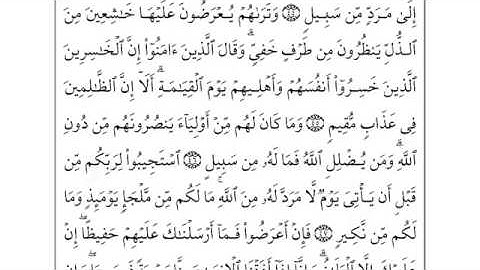 إِلَىٰ مَرَدٍّ مِّن سَبِيلٍ ٤٤ وَتَرَىٰهُمْ يُعْرَضُونَ عَلَيْهَا خَٰشِعِينَ مِنَ
ٱلذُّلِّ يَنظُرُونَ مِن طَرْفٍ خَفِيٍّ ۗ وَقَالَ ٱلَّذِينَ ءَامَنُوٓا۟ إِنَّ ٱلْخَٰسِرِينَ
ٱلَّذِينَ خَسِرُوٓا۟ أَنفُسَهُمْ وَأَهْلِيهِمْ يَوْمَ ٱلْقِيَٰمَةِ ۗ أَلَآ إِنَّ ٱلظَّٰلِمِينَ
فِى عَذَابٍ مُّقِيمٍ ٤٥ وَمَا كَانَ لَهُم مِّنْ أَوْلِيَآءَ يَنصُرُونَهُم مِّن دُونِ
ٱللَّهِ ۗ وَمَن يُضْلِلِ ٱللَّهُ فَمَا لَهُۥ مِن سَبِيلٍ ٤٦ ٱسْتَجِيبُوا۟ لِرَبِّكُم مِّن
قَبْلِ أَن يَأْتِىَ يَوْمٌ لَّا مَرَدَّ لَهُۥ مِنَ ٱللَّهِ ۚ مَا لَكُم مِّن مَّلْجَإٍ يَوْمَئِذٍ وَمَا
لَكُم مِّن نَّكِيرٍ ٤٧ فَإِنْ أَعْرَضُوا۟ فَمَآ أَرْسَلْنَٰكَ عَلَيْهِمْ حَفِيظًا ۖ إِنْ
عَلَيْكَ إِلَّا ٱلْبَلَٰغُ ۗ وَإِنَّآ إِذَآ أَذَقْنَا ٱلْإِنسَٰنَ مِنَّا رَحْمَةً فَرِحَ بِهَا ۖ وَإِن